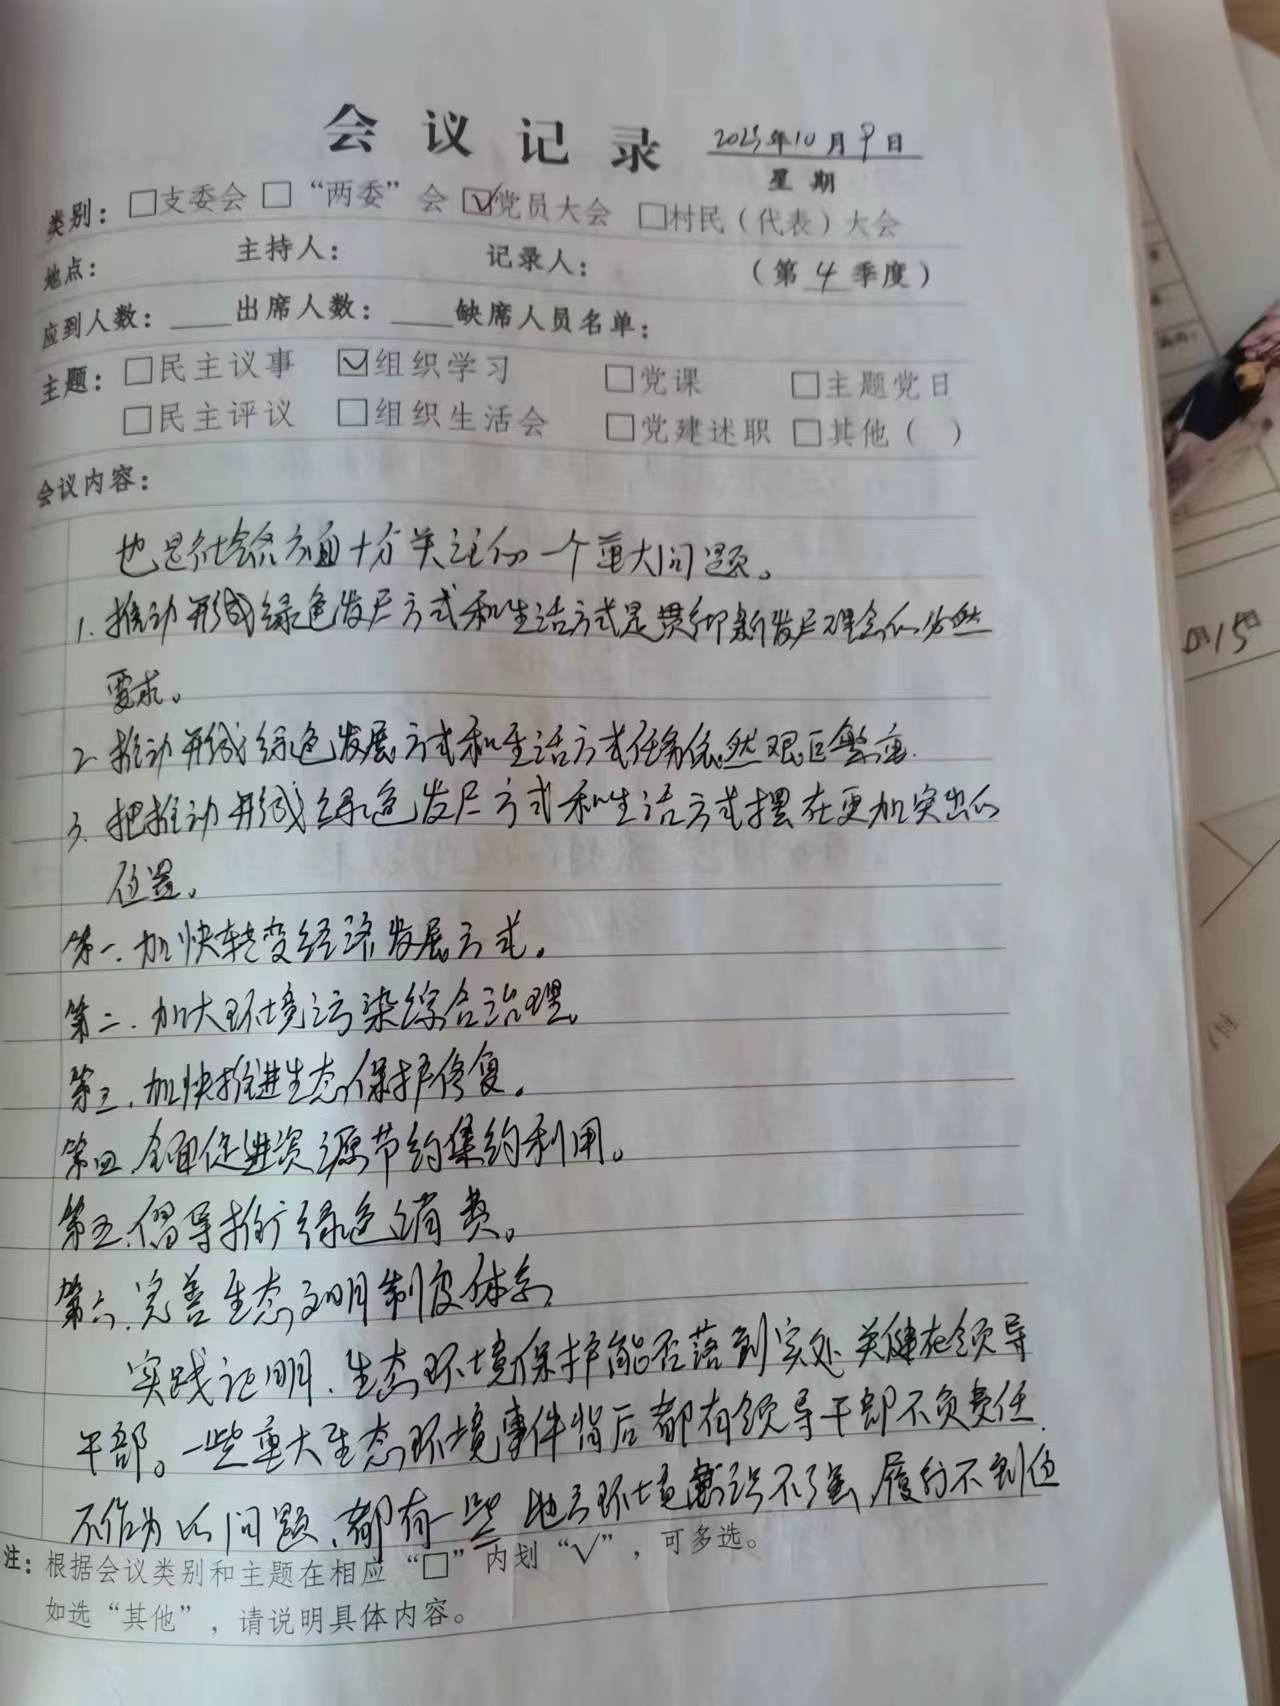 会议记录 2025年10月9日
星期
类别：□支委会 □“两委”会 ☑党员大会 □村民（代表）大会
地点： 主持人： 记录人： （第 4 季度）
应到人数：____出席人数：____缺席人员名单：
主题：□民主议事 ☑组织学习 □党课 □主题党日
□民主评议 □组织生活会 □党建述职 □其他（ ）
会议内容：
也是社会各方面十分关注的一个重大问题。
1. 推动形成绿色发展方式和生活方式是贯彻新发展理念的必然
要求。
2. 推动形成绿色发展方式和生活方式任务依然艰巨繁重.
3. 把推动形成绿色发展方式和生活方式摆在更加突出的
位置。
第一、加快转变经济发展方式。
第二、加大环境污染综合治理。
第三、加快推进生态保护修复。
第四、全面促进资源节约集约利用。
第五、倡导推广绿色消费。
第六、完善生态文明制度体系
实践证明、生态环境保护能否落到实处、关键在领导
干部。一些重大生态环境事件背后都有领导干部不负责任、
不作为的问题、都有一些地方环境意识不强、履行不到位
注：根据会议类别和主题在相应“□”内划“√”，可多选。
如选“其他”，请说明具体内容。
15